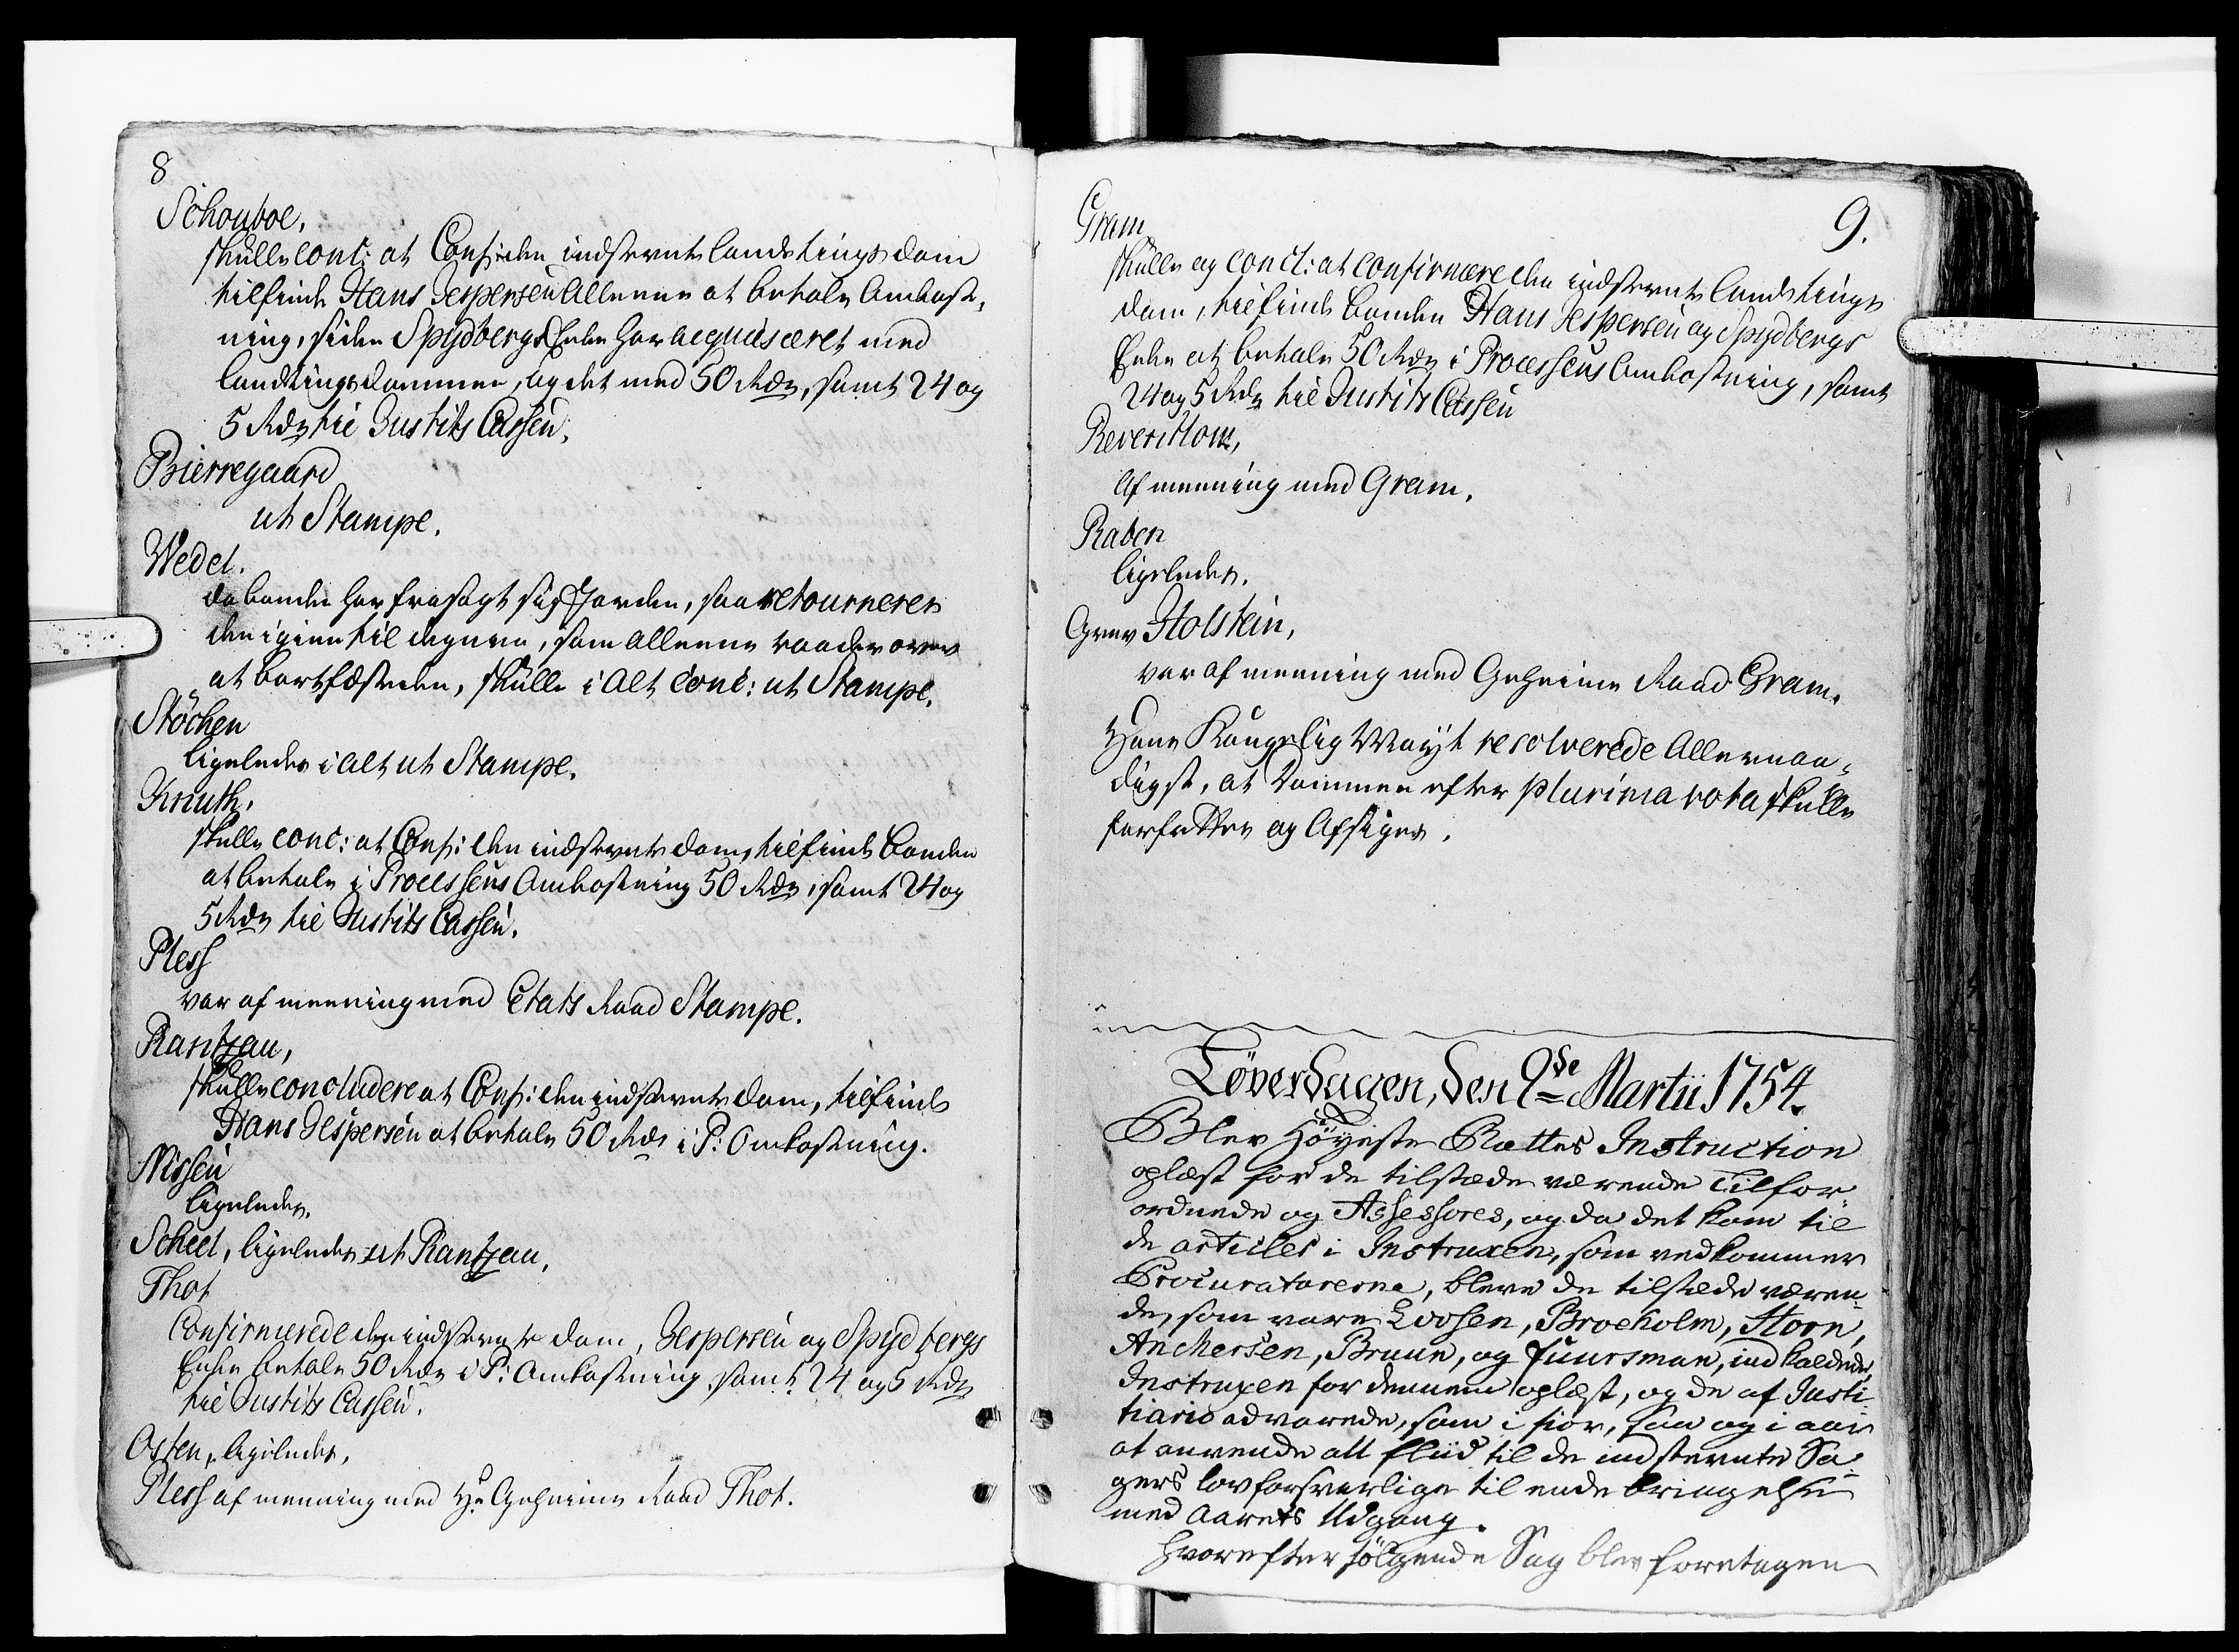 8
Schouboe.
skulle conc: at Conf: den indstevnte Landstings dom
tilfinde Hans Jespersen allene at betale Omkost-
ning, siden Spydbergs Enke har acquiesceret med
Landtingsdommen, og det med 50 Rdr, samt 24 og
5 Rdr til Justits Cassen.
Bierregaard
ut Stampe.
Wedel.
da bonden har frasagt sig Jorden, saa retourneres
den igien til degnen, som allene raader over
at bortfæste den, skulle i alt conc: ut Stampe.
Stöcken
ligeledes i alt ut Stampe.
Knuth.
skulle conc: at Conf: den indstevnte dom, tilfinde bonden
at betale i Processens Omkostning 50 Rdr, samt 24 og
5 Rdr til Justits Cassen.
Pless
var af meening med Etats Raad Stampe.
Rantzau,
skulle concludere at Conf: den indstevnte dom, tilfinde
Hans Jespersen at betale 50 Rdr i P: Omkostning.
Nissen
ligeledes.
Scheel, ligeledes ut Rantzau.
Thot
Confirmerede den indstevnte dom, Jespersen og Spydbergs
Enke betale 50 Rdr i P: Omkostning samt 24 og 5 Rdr
til Justits Cassen.
Osten, ligeledes.
Pless af meening med Hr Geheime Raad Thot.
9.
Gram
skulle og concl: at confirmere den indstevnte Landstings
dom, tilfinde bonden Hans Jespersen og Spydbergs
Enke at betale 50 Rdr i Processens Omkostning, samt
24 og 5 Rdr til Justits Cassen
Reventlow,
af meening med Gram.
Raben
ligeledes.
Grev Holstein,
var af meening med Geheime Raad Gram.
Hans Kongelig Mayt resolverede Allernaa-
digst, at Dommen efter plurima vota skulle
forfattes og Afsiges.
Löverdagen, den 9de Martii 1754.
Blev Höyeste Rættes Instruction
oplæst for de tilstæde værende Tilfor-
ordnede og Assessores, og da det kom til
de articler i Instruxen, som vedkommer
Procuratorerne, bleve de tilstæde væren-
de, som vare Loosen, Brocholm, Storn,
Anchersen, Bruun, og Fuursman, indkaldede,
Instruxen for dennem oplæst, og de af Justi-
tiario advarede, som i fior, saa og i aar
at anvende all fliid til de indstevnte Sa-
gers lovforsvarlige til ende bringelse
med Aarets Udgang.
Hvorefter fölgende Sag blev foretagen